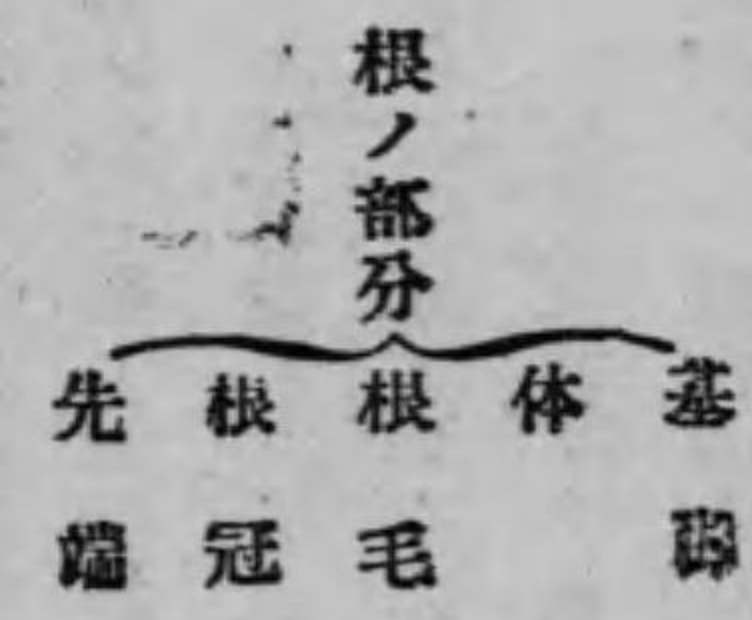 根ノ部分
基脚
体
根毛
根冠
先端